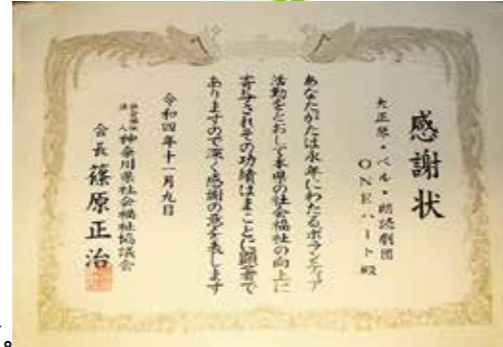 感謝状
大正琴・ベル・朗読劇団
ONEハート殿
あなたがたは永年にわたるボランティア
活動をとおして本県の社会福祉の向上に
寄与されその功績はまことに顕著で
ありますので深く感謝の意を表します
令和四年十一月九日
社会福祉法人神奈川県社会福祉協議会
会長 篠原正治
。